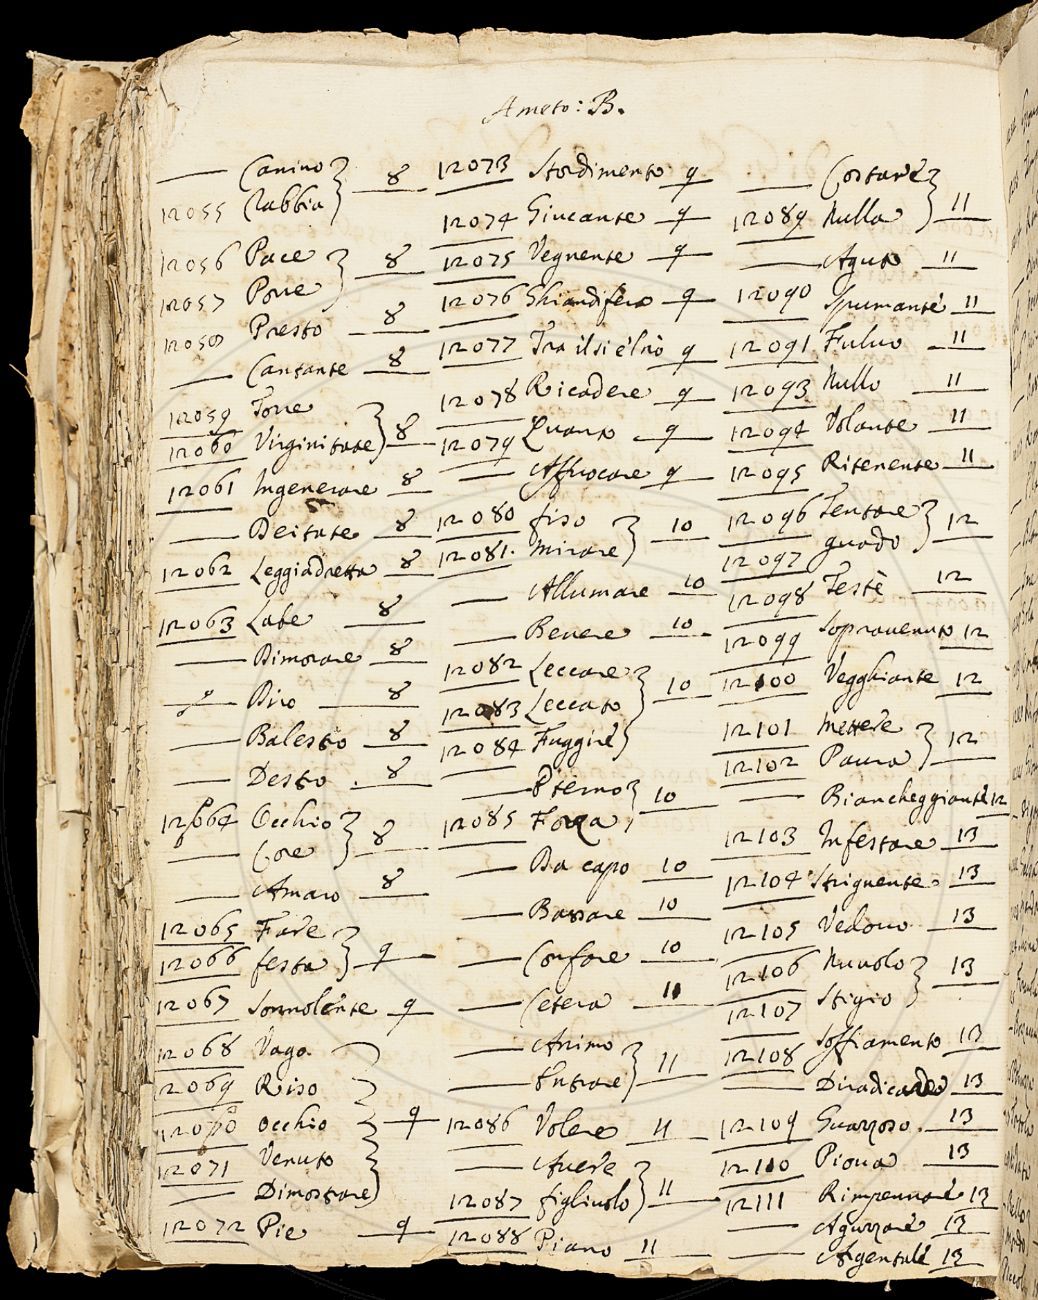 Ameto: B.
— Canino } 8
12055 Rabbia
12056 Pace } 8
12057 Porre
12058 Presto 8
— Cantante 8
12059 Torre } 8
12060 Virginitate
12061 Ingenerare 8
— Deitate 8
12062 Leggiadretta 8
12063 Labe 8
— Dimorare 8
— Diro 8
— Balestro 8
— Destro 8
12064 Occhio } 8
— Core
— Amaro 8
12065 Fare } 9
12066 festa
12067 Sonnolente 9
12068 Vago
12069 Riso
12070 occhio } 9
12071 Venuto
— Dimostrare
12072 Pie 9
12073 Stordimento 9
12074 Giucante 9
12075 Vegnente 9
12076 Ghiandifera 9
12077 Tra il si e 'l nò 9
12078 Ricadere 9
12079 Quanto 9
— Affuocare 9
12080 fiso } 10
12081. Mirare
— Allumare 10
— Benere 10
12082 Leccare } 10
12083 Leccato
12084 Fuggire
— Eterno } 10
12085 Forza
— Da capo 10
— Bassare 10
— Confare 10
— Cetera 11
— Animo } 11
— Entrare
12086 Volere 11
— Avere } 11
12087 figliuolo
12088 Piano 11
— Costare } 11
12089 Nulla
— Aguto 11
12090 Spumante 11
12091 Fulvo 11
12093 Nullo 11
12094 Volante 11
12095 Ritenente 11
12096 Tentare } 12
12097 guado
12098 Testè 12
12099 Sopravenuto 12
12100 Vegghiante 12
12101 Mettere } 12
12102 Paura
— Biancheggiante 12
12103 Infestare 13
12104 Strignente 13
12105 Vedovo 13
12106 Nuvolo } 13
12107 Stigio
12108 Soffiamento 13
— Diradicando 13
12109 Guazzoso. 13
12110 Piova 13
12111 Rimpennare 13
— Aguzzare 13
— Argentale 13